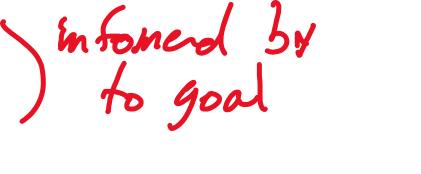 infomed by
to goal